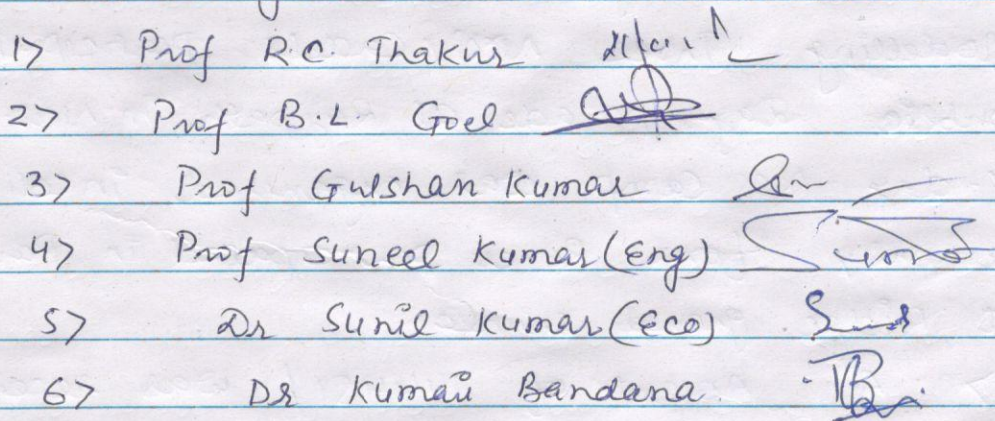 1> Prof R.C. Thakur
2> Prof B.L. Goel
3> Prof Gulshan Kumar
4> Prof Suneel Kumar (Eng)
5> Dr Sunil Kumar (Eco)
6> Dr Kumari Bandana